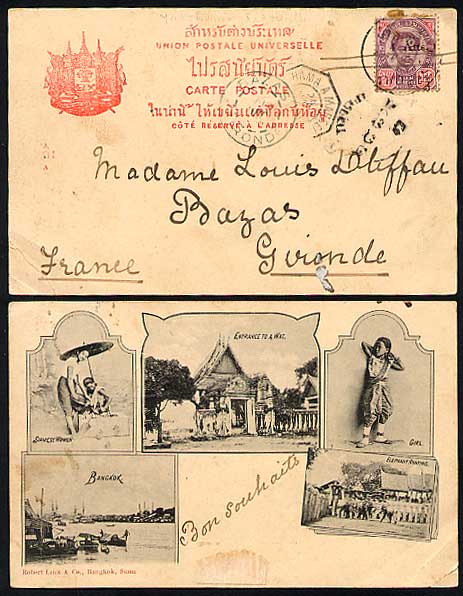 สำหรับต่างประเทศ
UNION POSTALE UNIVERSELLE
ไปรสนียบัตร
CARTE POSTALE
CÔTÉ RÉSERVÉ À L'ADRESSE
Madame Louis
Bazas
Gironde
France
SIAMESE WOMEN
ENTRANCE TO A WAT.
GIRL
BANGKOK
ELEPHANT HUNTING
Bon souhaits
Robert Lenz & Co., Bangkok, Siam